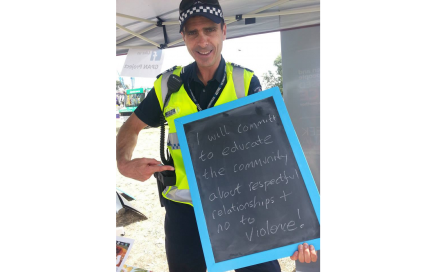 I will commit
to educate
the community
about respectful
relationships +
no to
Violence!